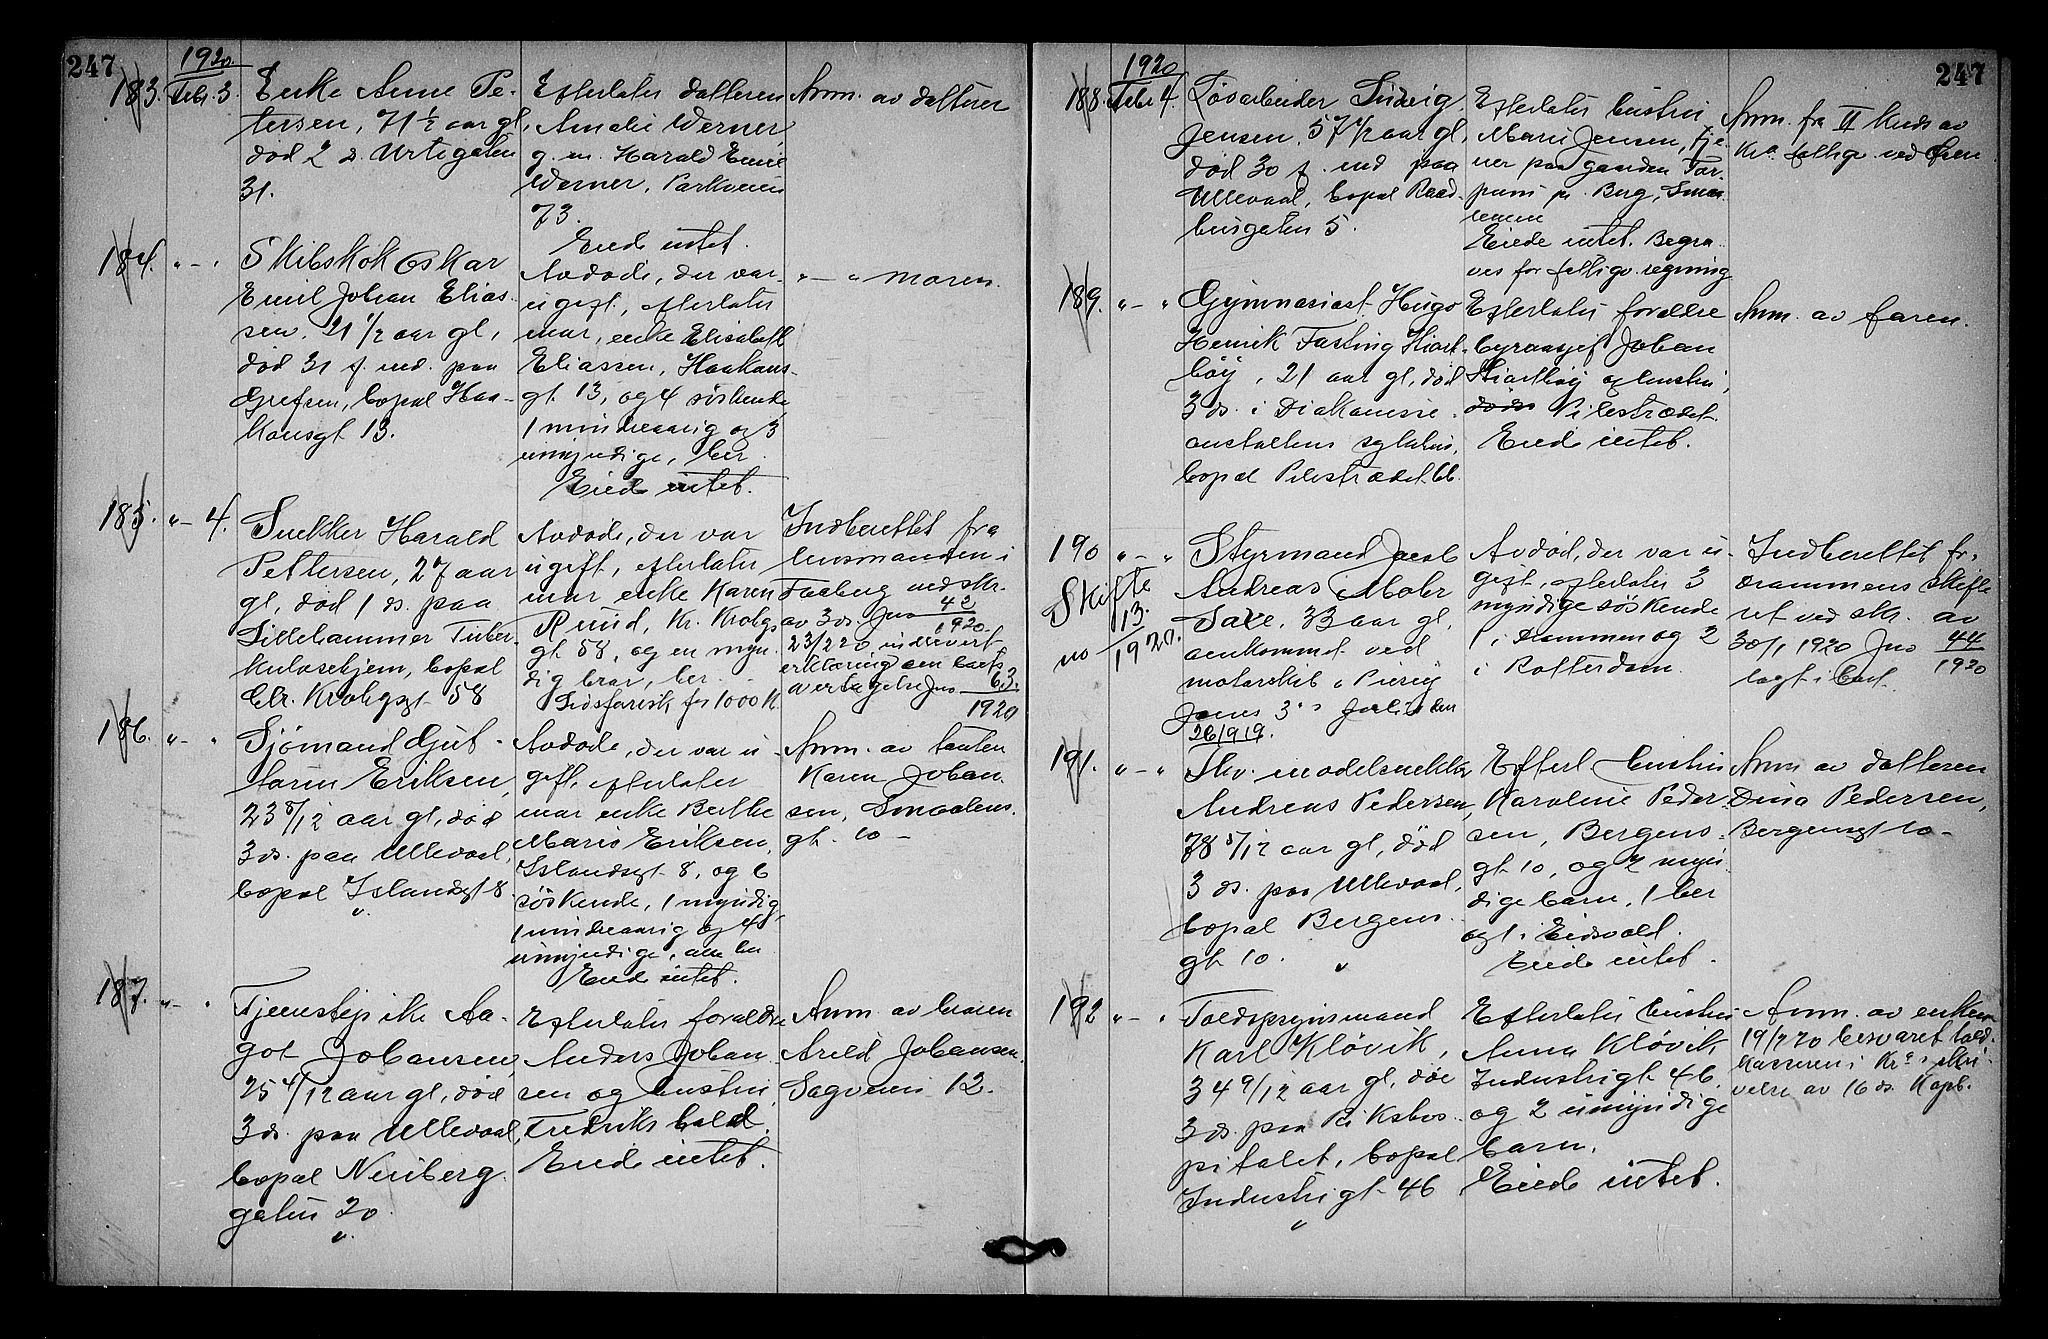 247
1920
183. Febr. 3.
Enke Anne Pe-
tersen, 71 1/2 aar gl,
død 2 ds. Urtegaten
31.
Efterlater datteren
Amalie Werner,
g. m. Harald Emil
Werner, Parkveien
73.
Eiede intet.
Anm. av datteren
184. " - "
Skibskok Oskar
Emil Johan Elias-
sen, 21 1/2 aar gl,
død 31 f. md. paa
Grefsen, bopæl Haa-
konsgt 13.
Avdøde, der var
ugift, efterlater
mor, enke Elisabeth
Eliassen, Haakons-
gt 13, og 4 søskende
1 mindreaarig og 3
umyndige, her.
Eiede intet.
" - " moren.
185. " - 4.
Snekker Harald
Pettersen, 27 aar
gl, død 1 ds. paa
Lillehammer Tuber-
kulosehjem, bopæl
Chr. Krohgsgt 58
Avdøde, der var
ugift, efterlater
mor enke Karen
Ruud, Kr. Krohgs
gt. 58, og en myn-
dig bror, her.
Livsforsik. for 1000 K.
Indberettet fra
lensmanden i
Faaberg ved skr.
av 3 ds. Jno 42/1920.
23/2 20, indlevert
erklæring om boets
overtagelse Jno 63./1920
186. " - "
Sjømand Gut-
torm Eriksen,
23 8/12 aar gl, død
3 ds. paa Ullevaal,
bopæl Islandsgt 8.
"
Avdøde, der var u-
gift, efterlater
mor enke Berthe
Marie Eriksen,
Islandsgt 8, og 6
søskende, 1 myndig,
1 mindreaarig og 4
umyndige, alle her
Eiede intet.
Anm. av tanten
Karen Johan-
sen, Smaalens-
gt. 10 -
187. " - "
Tjenestepike Aa-
got Johansen,
25 4/12 aar gl, død
3 ds. paa Ullevaal,
bopæl Nordberg-
gaten 20
"
Efterlater forældre
Anders Johan-
sen og hustru,
Fredrikshald.
Eiede intet.
Anm. av broren
Arild Johansen.
Sagveien 12.
247
1920
188. Febr 4.
Løsarbeider Ludvig
Jensen, 57 1/2 aar gl,
død 30 f. md paa
Ullevaal, bopæl Raad-
husgaten 5.
Efterlater hustru
Marie Jensen, tje-
ner paa gaarden Tor-
pum pr. Berg, Smaa-
lenene
Eiede intet. Begra-
ves for fattigv. regning
Anm. fra II Kreds av
Kra. fattigv. ved
189. " - "
Gymnasiast Hugo
Henrik Fasting Hiort-
høy, 21 aar gl, død
3 ds. i Diakonisse-
anstaltens sykehus,
bopæl Pilestrædet
Efterlater forældre
byraasjef Johan
Hiorthøy og hustru,
Pilestrædet.
Eiede intet.
Anm. av faren.
190 " - "
Skifte
13.
no 1920.
Styrmand Jacob
Andreas Mohr
Saxe, 33 aar gl,
omkommet ved
motorskib "
Jones 3"s forlis den
26/9 19.
Avdød, der var u-
gift, efterlater 3
myndige søskende
1 i Drammen og 2
i Rotterdam
Indberettet fr.
Drammens skifte-
ret ved skr. av
30/1 1920 Jno 44/1920
lagt i boet.
191. " - "
Fhv. modelsnekker
Andreas Pedersen,
78 5/12 aar gl, død
3 ds. paa Ullevaal,
bopæl Bergens-
gt 10.
"
Efterl hustru
Karoline Peder-
sen, Bergens-
gt 10, og 2 myn-
dige barn, 1 her
og 1 i Eidsvold.
Eiede intet.
Anm av datteren
Dina Pedersen,
Bergensgt 10 -
192 " - "
Toldopsynsmand
Karl Kløvik,
34 9/12 aar gl, død
3 ds. paa Rikshos-
pitalet, bopæl
Industrigt 46
"
Efterlater hustru
Anna Kløvik
Industrigt 46,
og 2 umyndige
barn.
Eiede intet.
Anm. av enken
19/2 20 besvaret told-
kassereren i Kra. skri-
velse av 16 ds. Kopb.